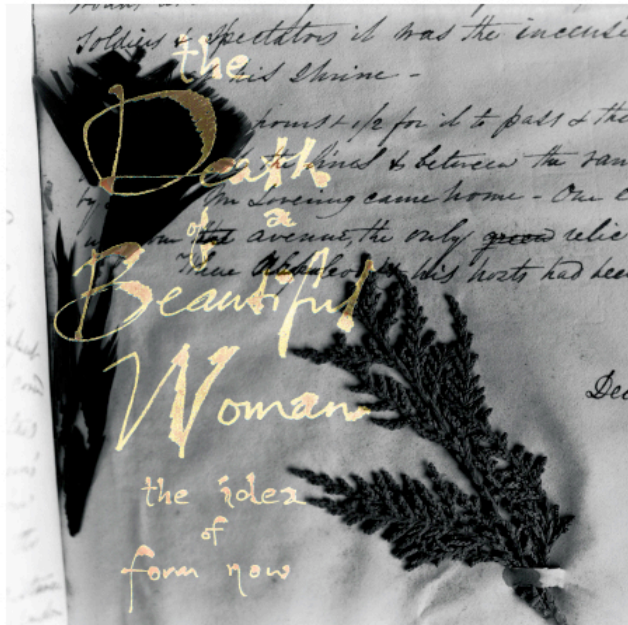 Soldiers & spectators it was the incense
his shrine -
hours & 1/2 for it to pass & the
the lines & between the
Lovering came home - Our
avenue, the only green relic
his hosts had been
Dec
the
Death
of a
Beautiful
Woman
the idea
of
form now